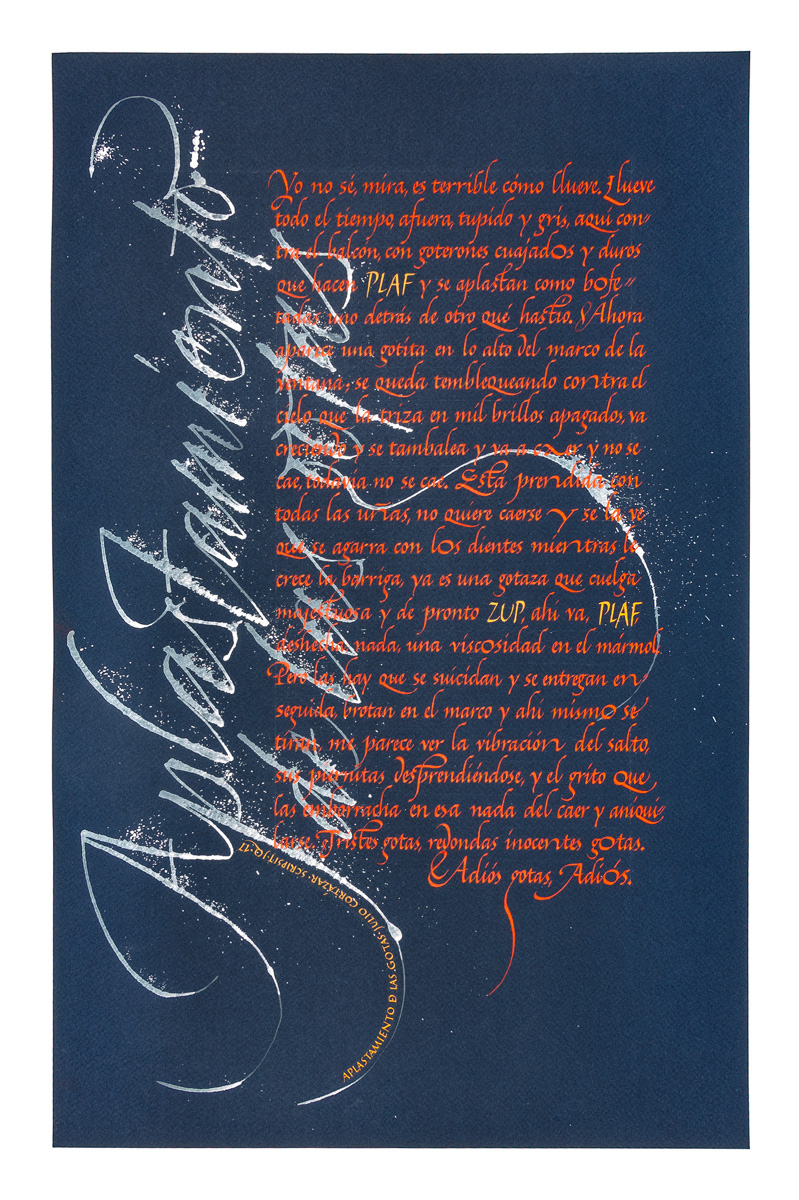 Aplastamiento
de las gotas
Yo no sé, mira, es terrible cómo llueve. Llueve
todo el tiempo, afuera, tupido y gris, aquí con-
tra el balcón, con goterones cuajados y duros
que hacen PLAF y se aplastan como bofe-
tadas uno detrás de otro qué hastío. Ahora
aparece una gotita en lo alto del marco de la
ventana; se queda tembleqeando contra el
cielo que la triza en mil brillos apagados, va
creciendo y se tambalea y va a caer y no se
cae, todavía no se cae. Está prendida con
todas las uñas, no quiere caerse y se la ve
que se agarra con los dientes mientras le
crece la barriga, ya es una gotaza que cuelga
majestuosa y de pronto ZUP, ahí va, PLAF,
deshecha, nada, una viscosidad en el mármol.
Pero las hay que se suicidan y se entregan en-
seguida, brotan en el marco y ahí mismo se
tiran, me parece ver la vibración del salto,
sus piernitas desprendiéndose, y el grito que
las emborracha en esa nada del caer y aniqui-
larse. Tristes gotas, redondas inocentes gotas.
Adiós gotas, Adiós.
APLASTAMIENTO D LAS GOTAS·JULIO CORTÁZAR·SCRIPSIT·JQ·17